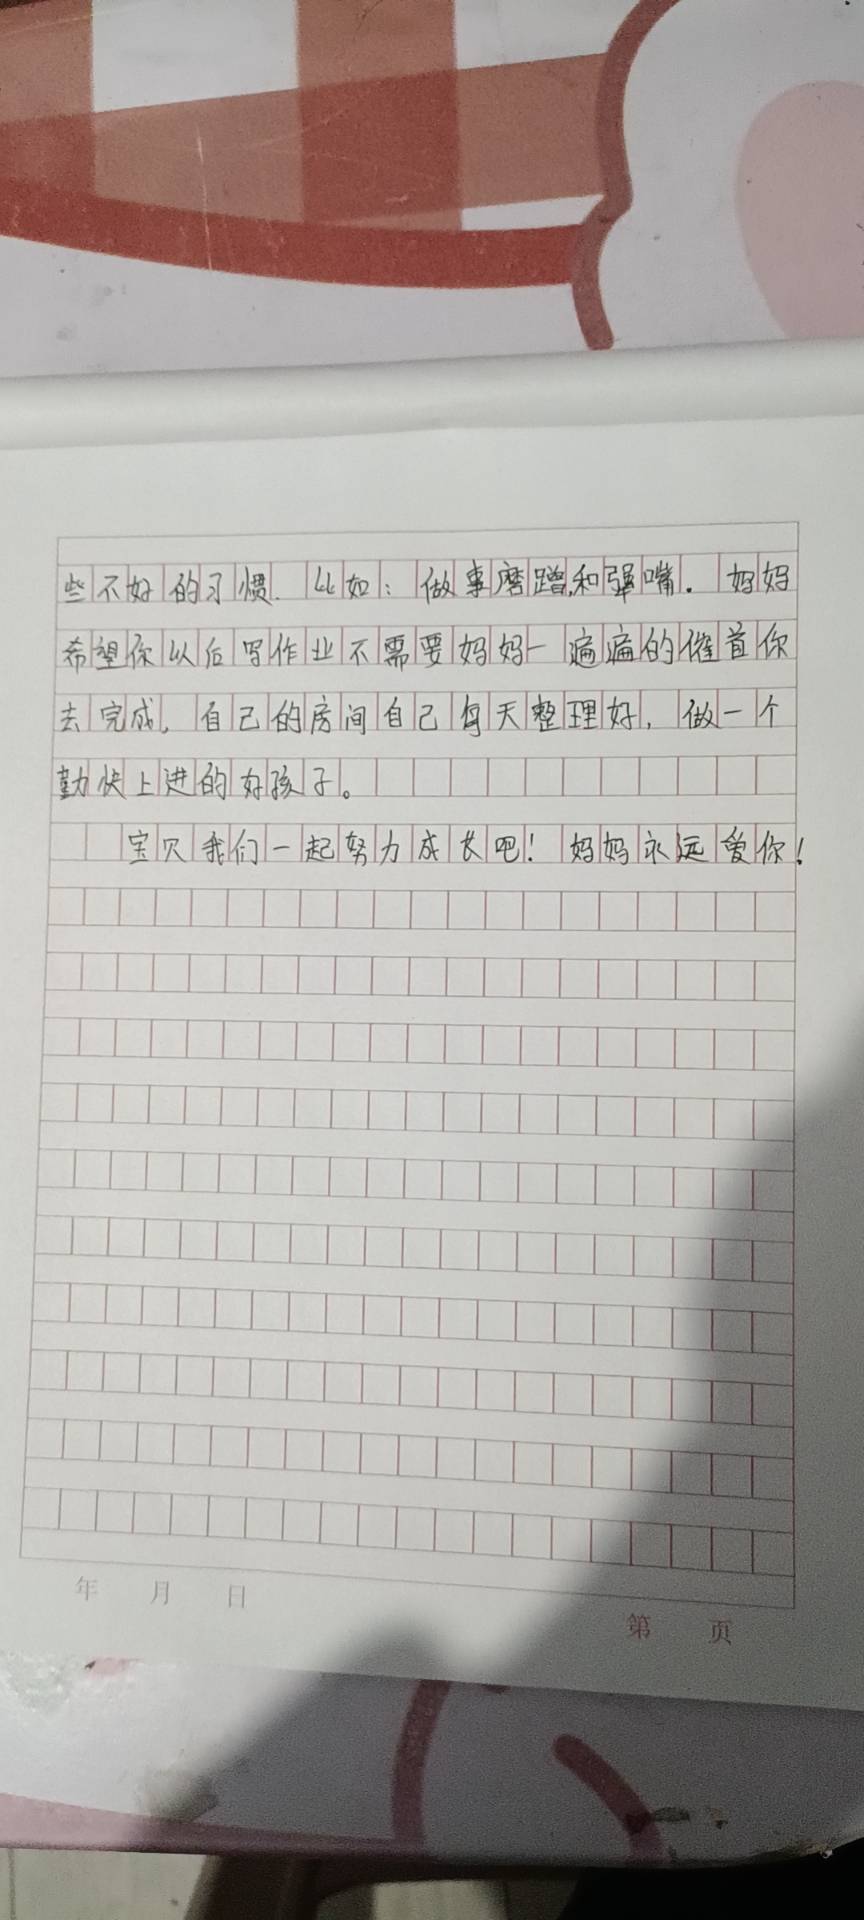 些不好的习惯.比如:做事磨蹭,和犟嘴.妈妈
希望你以后写作业不需要妈妈一遍遍的催着你
去完成,自己的房间自己每天整理好,做一个
勤快上进的好孩子。
宝贝我们一起努力成长吧!妈妈永远爱你!
年 月 日
第 页